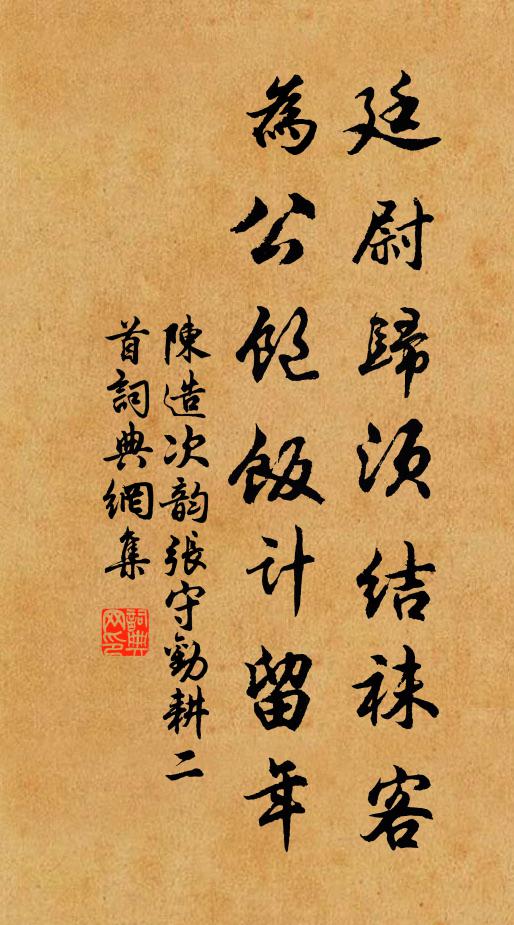 廷尉歸須結袜客
為公飽飯計留年
陳造次韵張守勸耕二
首詞典網集
詞典網印